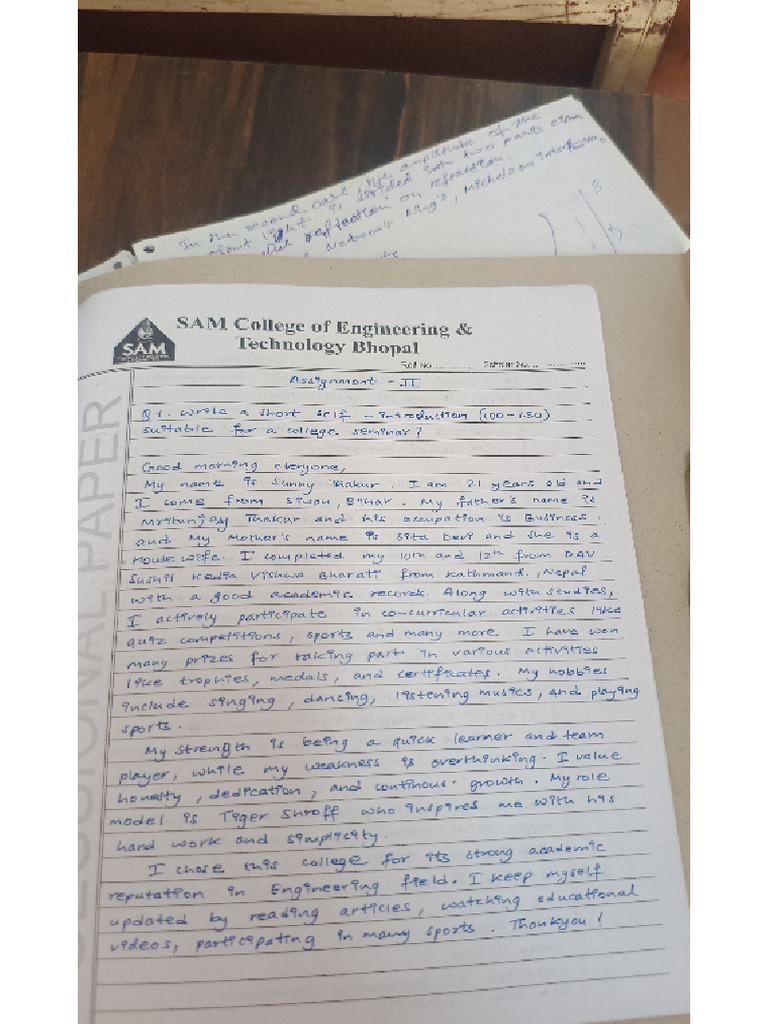 In the second case the amplitude of the
light is divided into two parts
reflection or refraction.
Newton's Ring's, Michelson
SAM College of Engineering &
Technology Bhopal
SAM
Roll No. .............. Scholar No. ..............
Assignment - II
SSIONAL PAPER
Q1. Write a short self - introduction (100-150)
suitable for a college seminar?
Good morning everyone,
My name is Sunny Thakur. I am 21 years old and
I come from Siwan, Bihar. My father's name is
Mritunjay Thakur and his occupation is Business.
and My Mother's name is Sita Devi and she is a
House wife. I completed my 10th and 12th from DAV
Sushil Kedia Vishwa Bharati from Kathmand., Nepal
with a good academic records. Along with studies,
I actively participate in co-curricular activities like
quiz competitions, sports and many more. I have won
many prizes for taking part in various activities
like trophies, medals, and certificates. My hobbies
include singing, dancing, listening musics, and playing
sports.
My strength is being a quick learner and team
player, while my weakness is overthinking. I value
honesty, dedication, and continous growth. My role
model is Tiger Shroff who inspires me with his
hard work and simplicity.
I chose this college for its strong academic
reputation in Engineering field. I keep myself
updated by reading articles, watching educational
videos, participating in many sports. Thankyou!